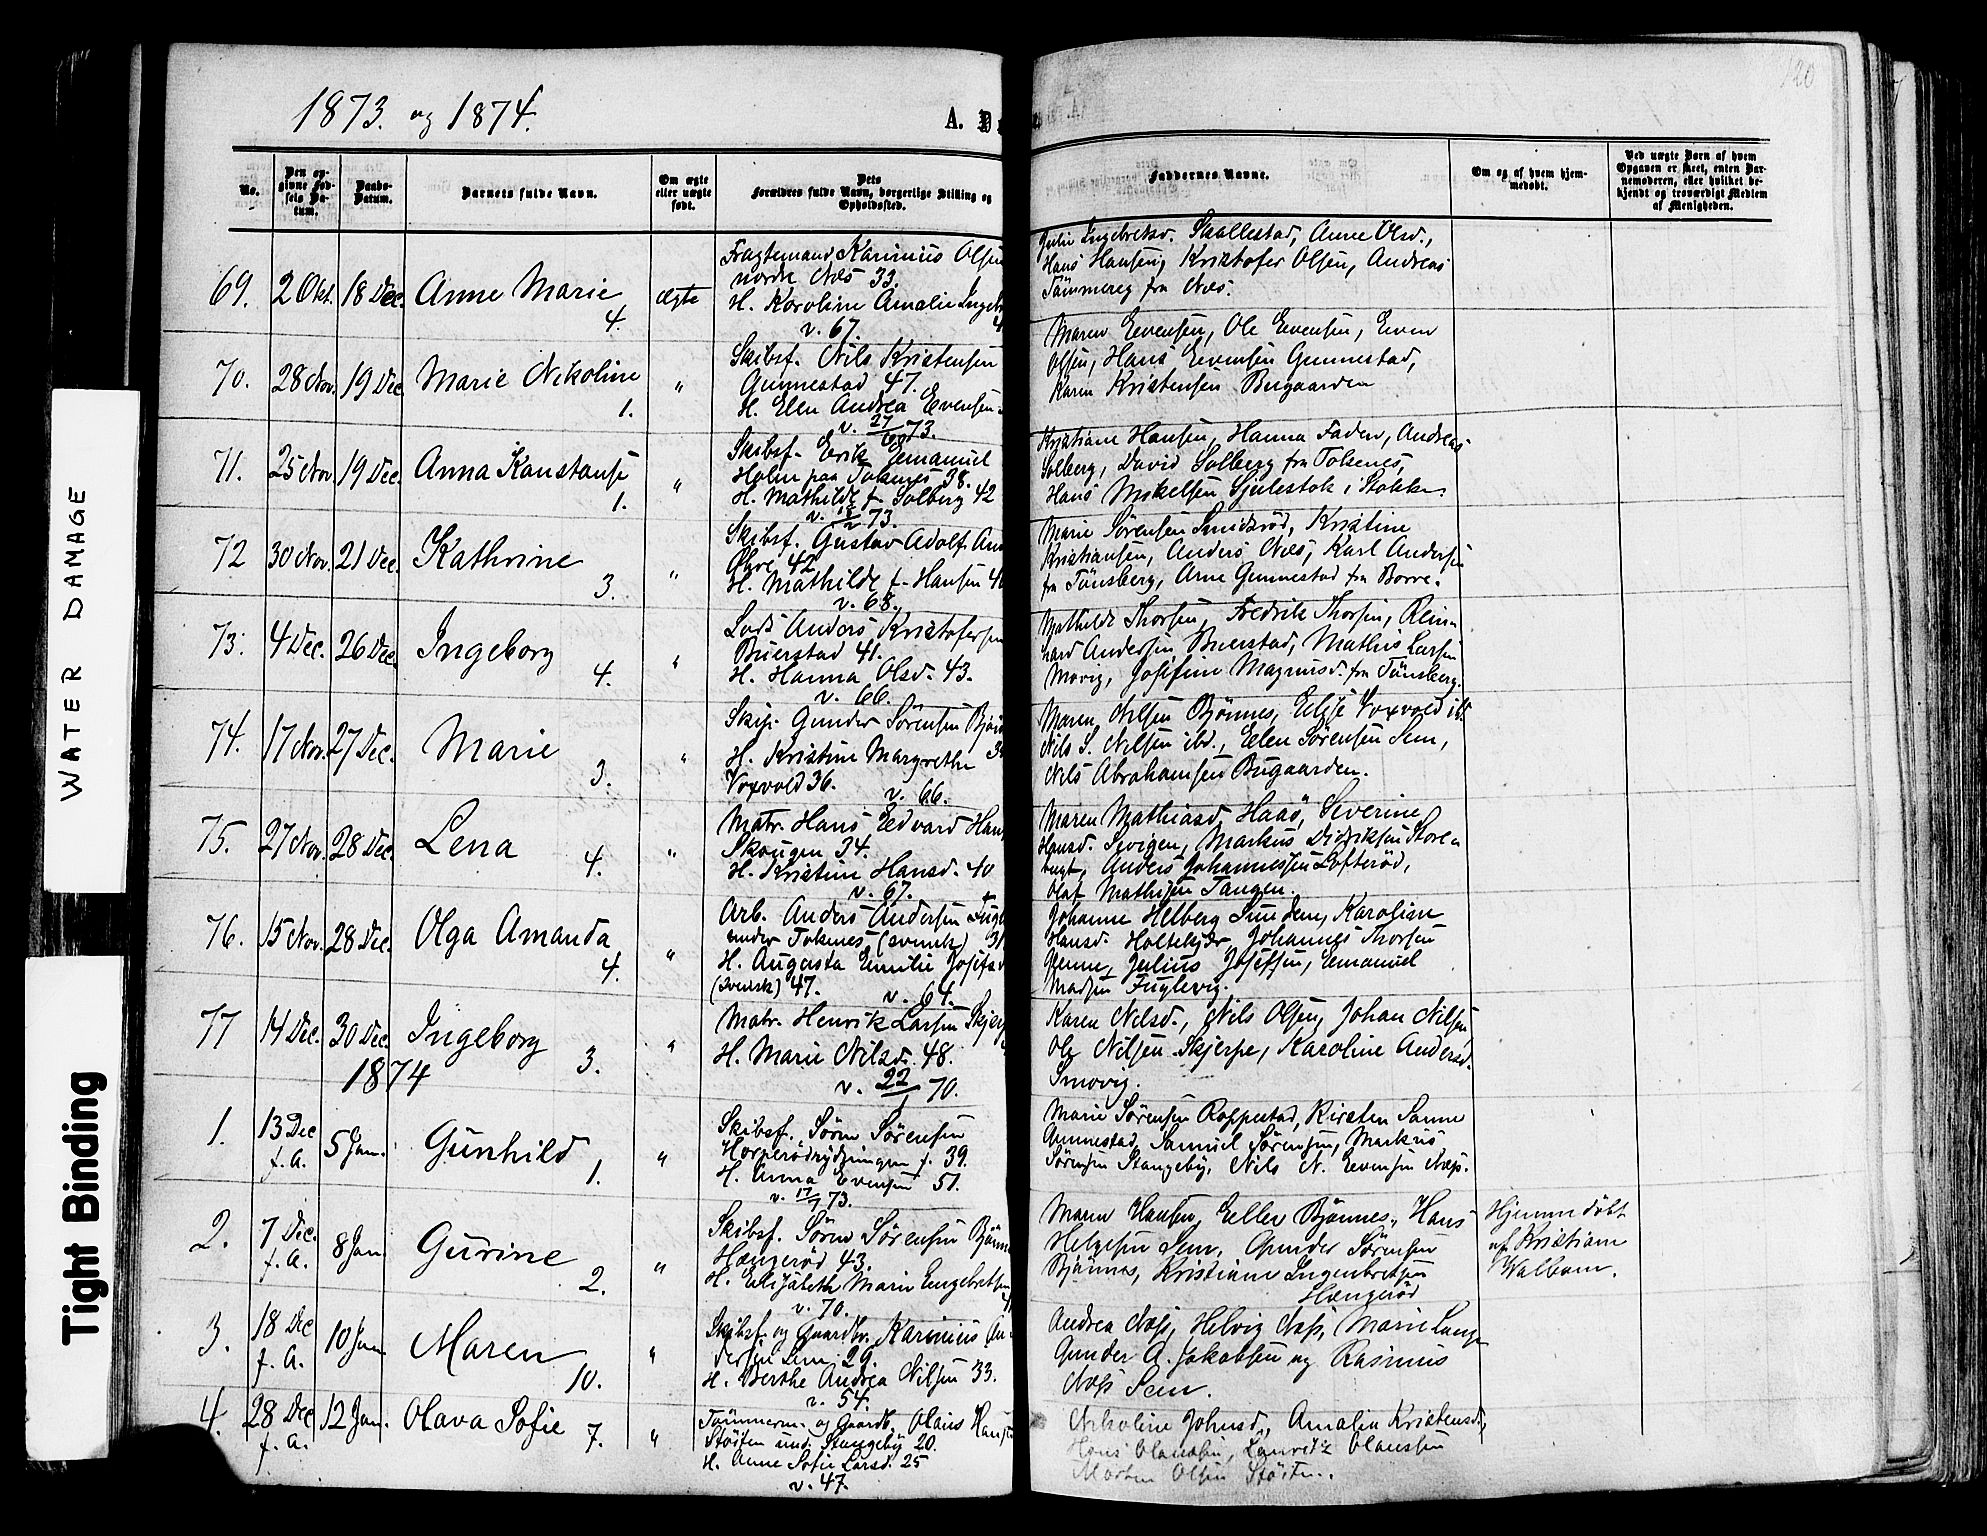 1873. og 1874.
A. D
120
WATER DAMAGE
Tight Binding
No.
Den opgivne Fødsels Datum.
Daabs-Datum.
Barnets fulde Navn.
Om ægte eller uægte født.
Dets Forældres fulde Navn, borgerlige Stilling og Opholdssted.
Faddernes Navne.
Om og af hvem hjemmedøbt.
Ved uægte Børn af hvem Opgaven er skeet, enten Barnemoderen, eller hvilket bekjendt og troværdigt Medlem af Menigheden.
69. 2 Okt. 18 Dec. Anne Marie 4. ægte
Fragtemand Karinius Olsen
nordre Næs 33.
H. Karoline Amalie Ingeb
v. 67.
Julie Ingebretsd. Skallestad, Anne Olsd.,
Hans Hansen, Kristofer Olsen, Andreas
Tømmereg fra Næs.
70. 28 Nov. 19 Dec. Marie Nikoline 1. "
Skibsf. Nils Kristensen
Gunnestad 47.
H. Elen Andrea Evensen
v. 27/6 73.
Maren Evensen, Ole Evensen, Even
Olsen, Hans Evensen Gunnestad,
Karen Kristensen Bugaarden
71. 25 Nov. 19 Dec. Anna Konstanse 1. "
Skibsf. Erik Emanuel
Holm paa Toknes 38.
H. Mathilde f. Solberg 42
v. 18/2 73.
Kristiane Hansen, Hanna Faden, Andreas
Solberg, David Solberg fra Toknes,
Hans Mikelsen Sjulestok i Stokke.
72 30 Nov. 21 Dec. Kathrine 3. "
Skibsf. Gustav Adolf An
Øhre 42
H. Mathilde f. Hansen 40
v. 68.
Marie Sørensen Smidsrød, Kristine
Kristiansen, Anders Næs, Karl Andersen
fra Tønsberg, Arne Gunnestad fra Borre.
73. 4 Dec. 26 Dec. Ingeborg 4. "
Lods Anders Kristofersen
Buerstad 41.
H. Hanna Olsd. 43.
v. 66.
Mathilde Thorsen, Fredrik Thorsen, Rein=
hard Andersen Buerstad, Mathis Larsen
Movig, Josefine Magnusd. fra Tønsberg.
74. 17 Nov. 27 Dec. Marie 3. "
Skip. Gunder Sørensen Bjøn
H. Kristine Margrethe
Voxvold 36. v. 66.
Maren Nilsen Bjønnes, Elise Voxvold ibd.
Nils S. Nilsen ibd., Elen Sørensen Sem,
Nils Abrahamsen Bugaarden.
75. 27 Nov. 28 Dec. Lena 4. "
Matr. Hans Edvard Han
Skougen 34.
H. Kristine Hansd. 40
v. 67.
Maren Mathiasd Haas, Severine
Hansd. Sevigen, Markus Didriksen Store=
bugt, Anders Johannessen Lofterød,
Olaf Mathisen Tangen.
76. 15 Nov. 28 Dec. Olga Amanda 4. "
Arb. Anders Andersen Fugl
under Toknes (svensk) 31
H. Augusta Emilie Josefsd
(svensk) 47. v. 64.
Johanne Helberg Sundem, Karoline
Hansd. Holtekjær, Johannes Thorsen
Glenne, Julius Josefsen, Emanuel
Madsen Fuglevig.
77 14 Dec. 30 Dec. Ingeborg 3. "
Matr. Henrik Larsen Skjer
H. Marie Nilsd. 48.
v. 22/1 70.
Karen Nilsd., Nils Olsen, Johan Nilsen
Ole Nilsen Skjerpe, Karoline Andersd.
Smovig.
1874
1. 13 Dec f. A. 5 Jan. Gunhild 1. "
Skibsf. Søren Sørensen
Horperødrydningen f. 39.
H. Anna Evensen 51.
v. 17/7 73.
Marie Sørensen Roppestad, Kirsten Sanne
Gunnestad, Samuel Sørensen, Markus
Sørensen Stangeby, Nils N. Evensen Næss.
2. 7 Dec. f. A. 8 Jan Gurine 2. "
Skibsf. Søren Sørensen Bjønn
Hængerød 43.
H. Elisabeth Marie Engebretsen
v. 70.
Maren Hansen, Eller Bjønnes, Hans
Helgesen Sem, Gunder Sørensen
Bjønnes, Kristiane Ingenbretsen
Hængerød
Hjemmedøbt
af Kristiane
Walbom.
3. 18 Dec f. A. 10 Jan Maren 10. "
Skibsf. og Gaardbr. Karinius An=
dersen Sem 29.
H. Berthe Andrea Nilsen 33.
v. 54.
Andrea Næss, Helvig Næss, Marie Lange
Gunder A. Jakobsen og Rasmus
Næss Sem.
4. 28 Dec f. A. 12 Jan. Olava Sofie 7. "
Tømmerm. og Gaardb. Olaus Hansen
Støiten und. Stangeby 20.
H. Anne Sofie Larsd. 25
v. 47.
Nikoline Johnsd., Amalie Kristensd.,
Hans Olaussen, Lauritz Olaussen
Morten Olsen Støiten.